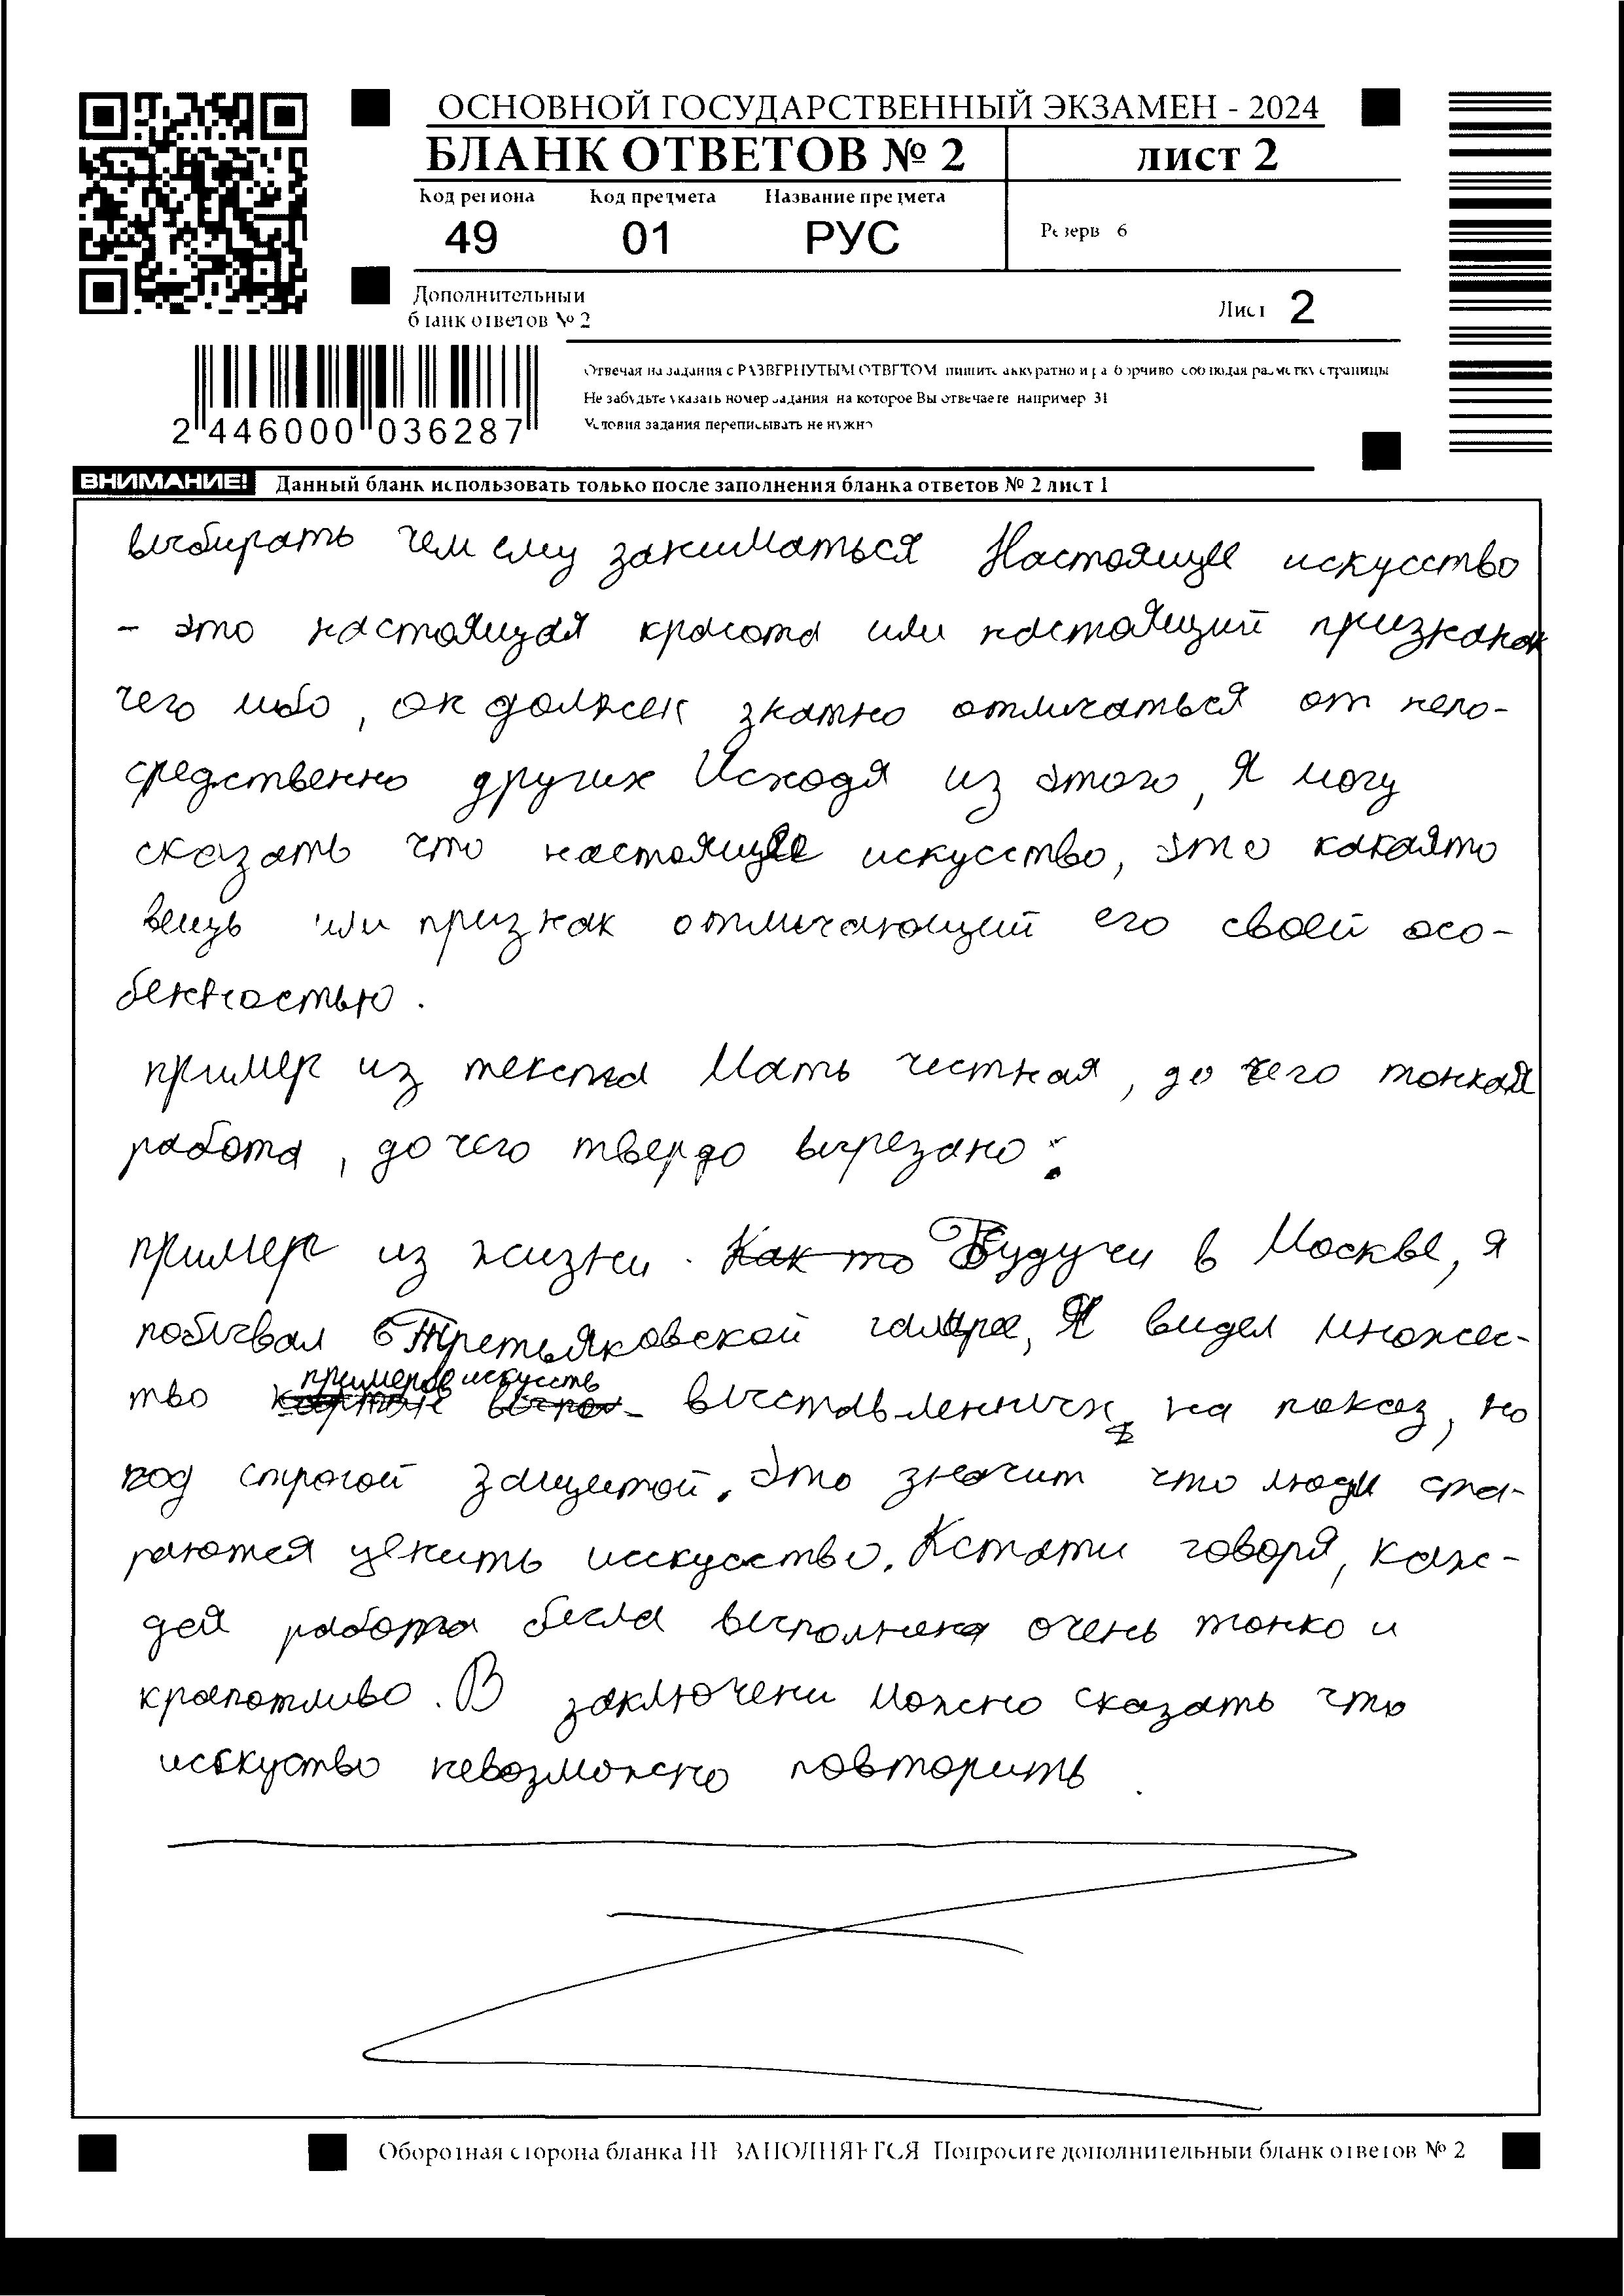 ОСНОВНОЙ ГОСУДАРСТВЕННЫЙ ЭКЗАМЕН - 2024
БЛАНК ОТВЕТОВ № 2
лист 2
Код региона Код предмета Название предмета
49 01 РУС
Резерв 6
Дополнительный
бланк ответов № 2
Лист 2
Отвечая на задания с РАЗВЕРНУТЫМ ОТВЕТОМ пишите аккуратно и разборчиво соблюдая разметку страницы
Не забудьте указать номер задания на которое Вы отвечаете например 31
Условия задания переписывать не нужно
2 446000 036287
ВНИМАНИЕ! Данный бланк использовать только после заполнения бланка ответов № 2 лист 1
выбирать чем ему заниматься Настоящее искусство
- это настоящая красота или настоящий признак
чего либо, он должен знатно отличаться от непо-
средственно других Исходя из этого, я могу
сказать что настоящее искусство, это какаято
вещь или признак отличающий его своей осо-
бенностью.
пример из текста Мать честная, до чего тонкая
работа, до чего твердо вырезано:
пример из жизни. Как то Будучи в Москве, я
побывал в Третьяковской галаре, Я видел множес-
примеров искусств
тво выставленных на показ, но
под строгой защитой. Это значит что люди ста-
раются ценить исскусство. Кстати говоря, каж-
дей работа была выполнена очень тонко и
крапотливо. В заключени можно сказать что
исскуство невозможно повторить.
Оборотная сторона бланка НЕ ЗАПОЛНЯЕТСЯ Попросите дополнительный бланк ответов № 2